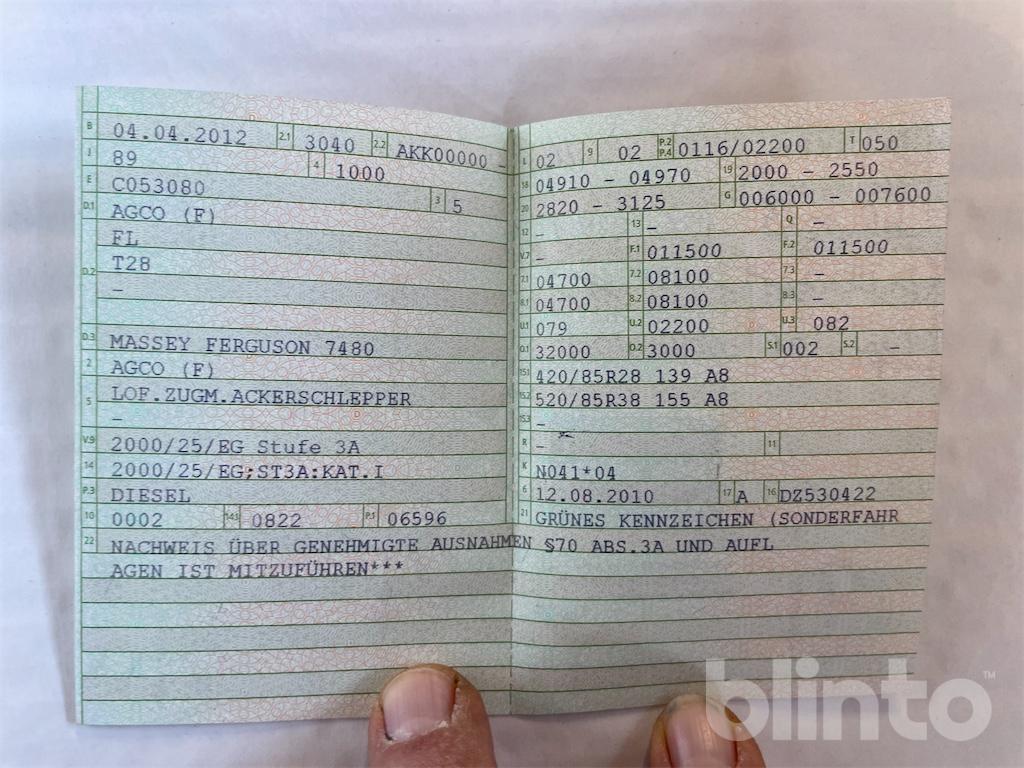 B 04.04.2012 2.1 3040 2.2 AKK00000 -
J 89 4 1000
E C053080 3 5
D.1 AGCO (F)
FL
D.2 T28
-
D.3 MASSEY FERGUSON 7480
2 AGCO (F)
5 LOF.ZUGM.ACKERSCHLEPPER
-
V.9 2000/25/EG Stufe 3A
14 2000/25/EG;ST3A:KAT.I
P.3 DIESEL
10 0002 14.1 0822 P.1 06596
L 02 9 02 P.2 P.4 0116/02200 T 050
18 04910 - 04970 19 2000 - 2550
20 2820 - 3125 G 006000 - 007600
12 - 13 - Q -
V.7 - F.1 011500 F.2 011500
7.1 04700 7.2 08100 7.3 -
8.1 04700 8.2 08100 8.3 -
U.1 079 U.2 02200 U.3 082
O.1 32000 O.2 3000 S.1 002 S.2 -
15.1 420/85R28 139 A8
15.2 520/85R38 155 A8
15.3 -
R - 11
K N041*04
6 12.08.2010 17 A 16 DZ530422
21 GRÜNES KENNZEICHEN (SONDERFAHR
22 NACHWEIS ÜBER GENEHMIGTE AUSNAHMEN §70 ABS.3A UND AUFL
AGEN IST MITZUFÜHREN***
blinto™